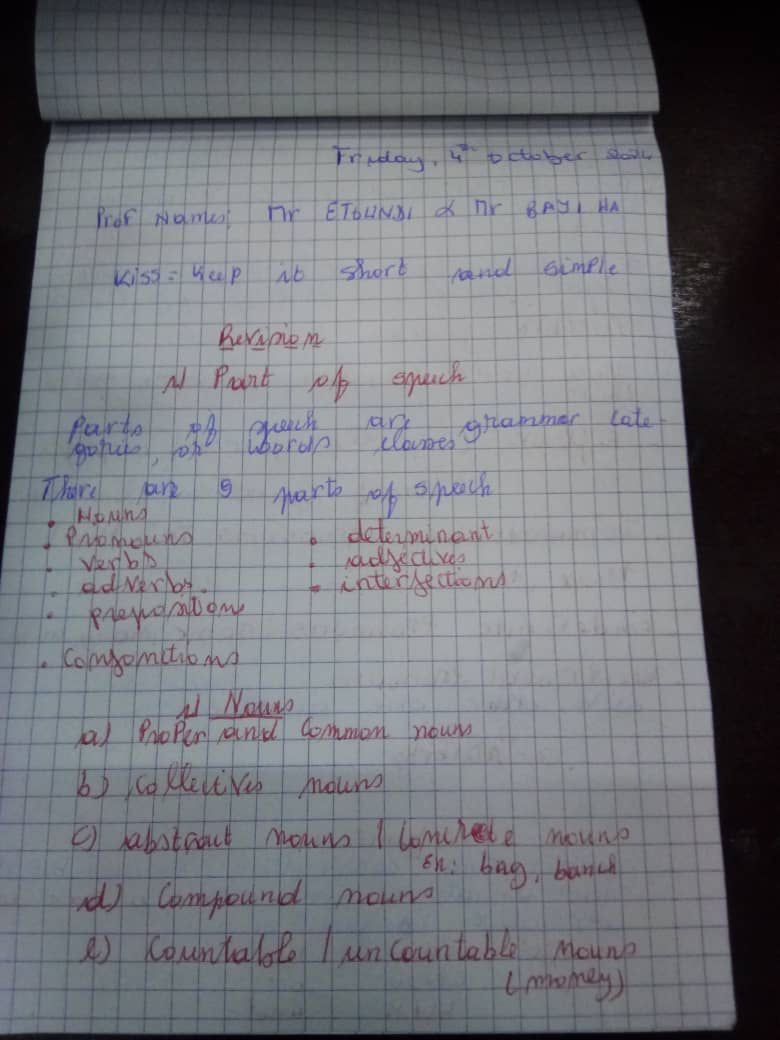 Friday, 4th October 2024
Prof Names: Mr ETOUNDI & Mr BAYIHA
Kiss = Keep it short and simple
Revision
1) Part of speech
Parts of speech are grammer cate-
gories, or words classes
There are 9 parts of speech
• Nouns
• Pronouns • determinant
• verbs • adjectives
• adverbs. • interjections
• prepositions
• Conjonctions
1) Nouns
a) Proper and Common nouns
b) Collectives nouns
c) abstract nouns / Concrete nouns
Ex: bag, banch
d) Compound nouns
e) Countable / uncountable nouns
(money)